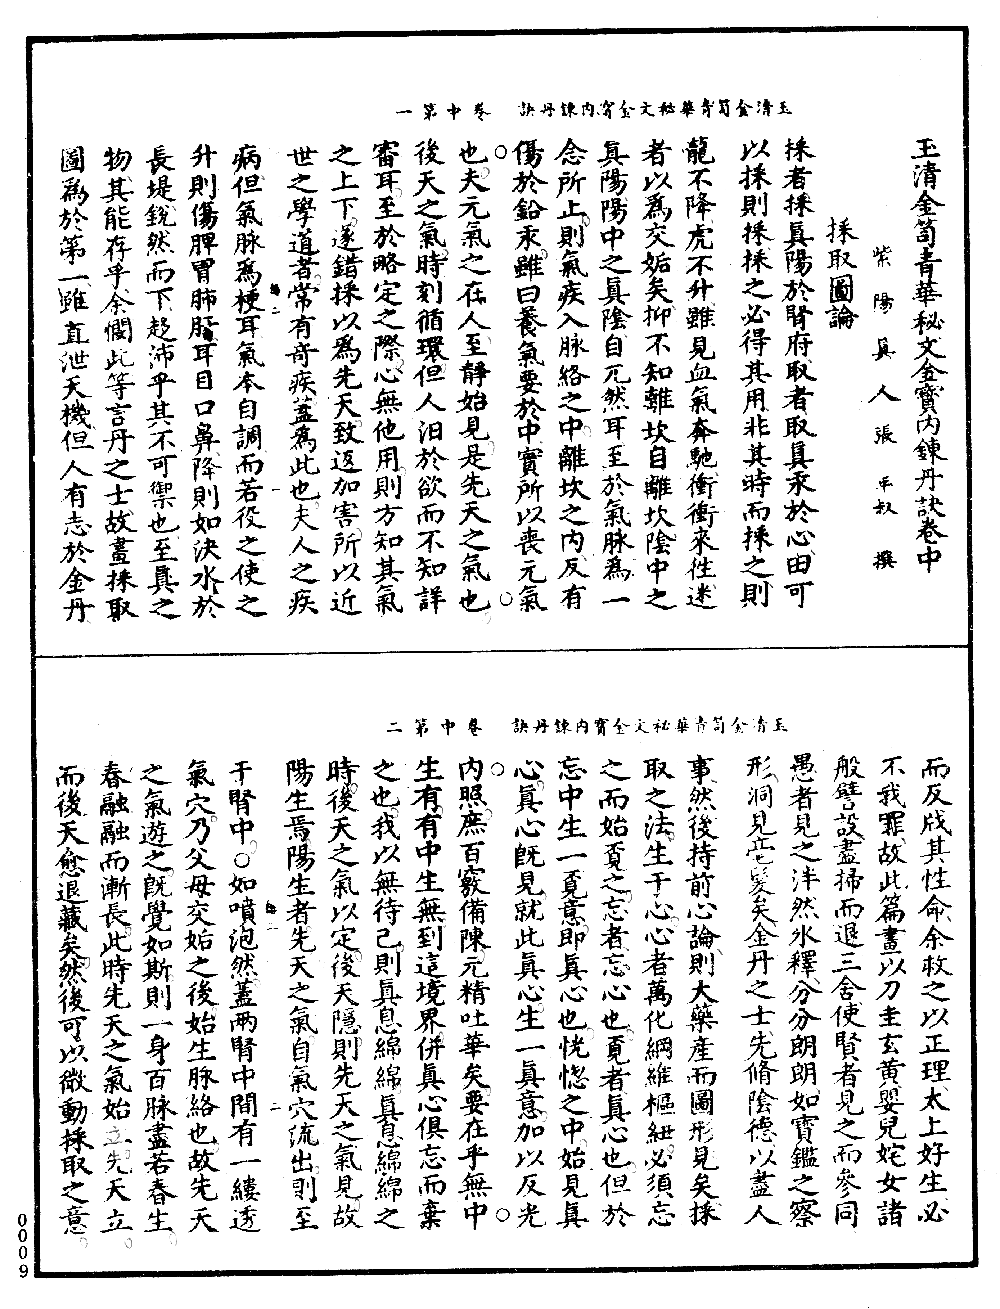 玉清金笥青華秘文金寶內鍊丹訣　卷中第一
玉清金笥青華秘文金寶內鍊丹訣卷中
紫陽眞人張平叔撰
採取圖論
採者採眞陽於腎府取者取眞汞於心田可
以採則採採之必得其用非其時而採之則
龍不降虎不升雖見血氣奔馳衝衝來往迷
者以爲交姤矣抑不知離坎自離坎陰中之
眞陽陽中之眞陰自兀然耳至於氣脉爲一
念所止則氣疾入脉絡之中離坎之內反有
傷於鉛汞雖曰養氣要於中實所以喪元氣
也○夫元氣之在人至靜始見是先天之氣也○
後天之氣時刻循環但人汨於欲而不知詳
審耳至於略定之際心無他用則方知其氣
之上下遂錯採以爲先天致返加害所以近
世之學道者常有奇疾蓋爲此也夫人之疾
病但氣脉爲梗耳氣本自調而若役之使之
升則傷脾胃肺肝耳目口鼻降則如決水於
長堤銳然而下超沛乎其不可禦也至眞之
物其能存乎余憫此等言丹之士故畫採取
圖爲於第一雖直泄天機但人有志於金丹
玉清金笥青華秘文金寶內鍊丹訣　卷中第二
而反戕其性命余救之以正理太上好生必
不我罪故此篇畫以刀圭玄黃嬰兒姹女諸
般譬設盡掃而退三舍使賢者見之而參同
愚者見之泮然冰釋分分朗朗如寶鑑之察
形洞見毛髮矣金丹之士先脩陰德以盡人
事然後持前心論則大藥產而圖形見矣採
取之法生于心心者萬化綱維樞紐必須忘
之而始覓之忘者忘心也覓者眞心也但於
忘中生一覓意即眞心也恍惚之中始見眞
心眞心旣見就此眞心生一眞意加以反光
內照庶百竅備陳元精吐華矣○要在乎無中○
生有有中生無到這境界併眞心俱忘而棄
之也我以無待己則眞息綿綿眞息綿綿之
時後天之氣以定後天隱則先天之氣見故
陽生焉陽生者先天之氣自氣穴流出則至
于腎中○如噴泡然蓋兩腎中間有一縷透
氣穴乃父母交姤之後始生脉絡也故先天
之氣遊之旣覺如斯則一身百脉盡若春生
春融融而漸長此時先天之氣始立先天立
而後天愈退藏矣然後可以微動採取之意
0009